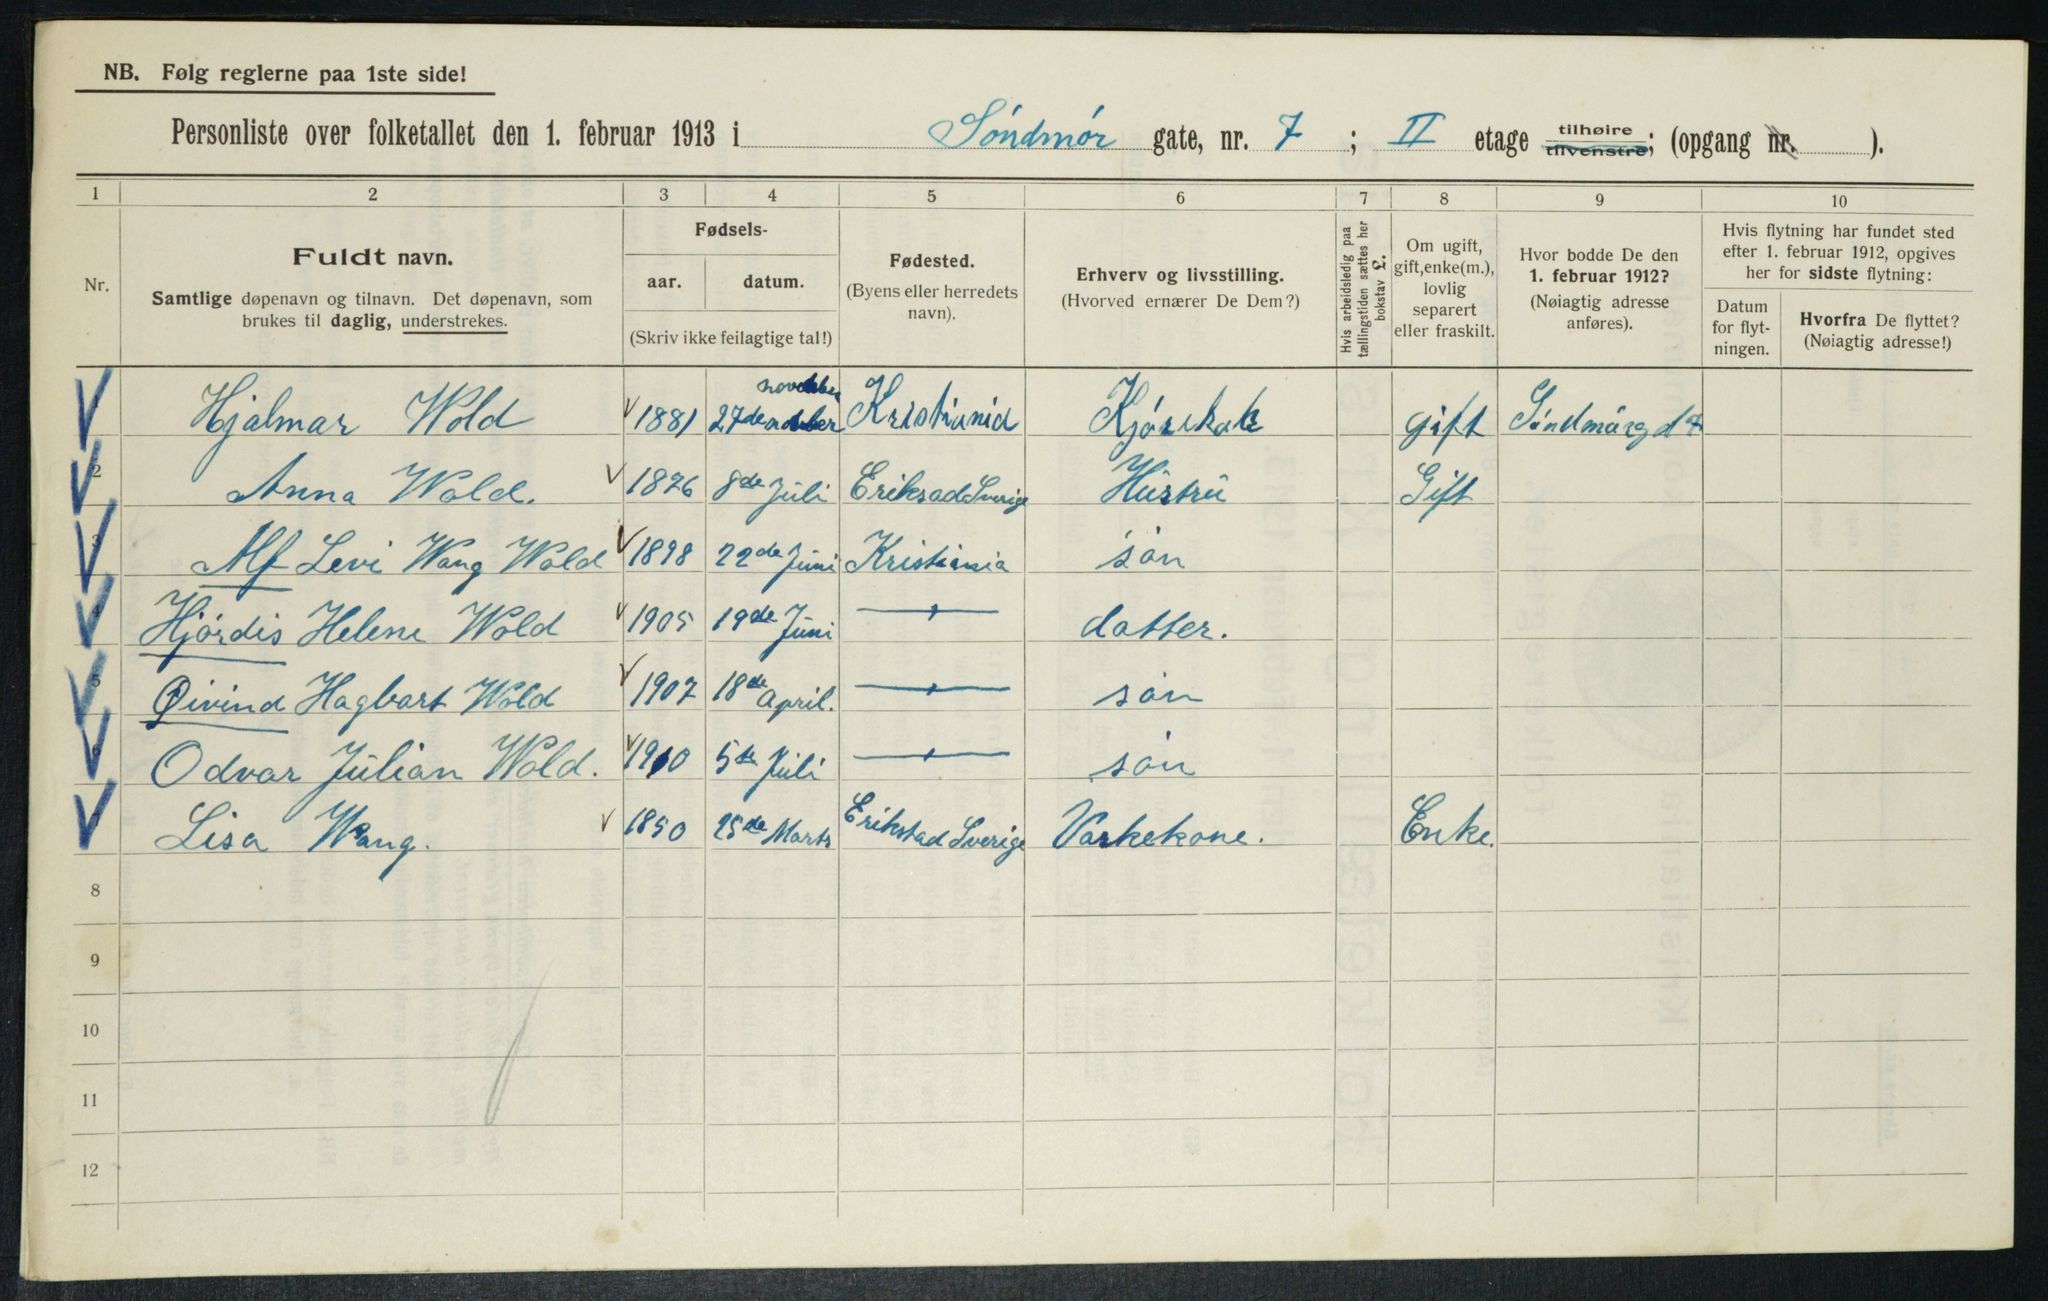 NB. Følg reglerne paa 1ste side!
Personliste over folketallet den 1. februar 1913 i Söndmör gate, nr. 7 ; II etage tilhøire tilvenstre; (opgang nr. ).
1 2 3 4 5 6 7 8 9 10
Nr.
Fuldt navn.
Samtlige døpenavn og tilnavn. Det døpenavn, som
brukes til daglig, understrekes.
Fødsels-
aar. datum.
(Skriv ikke feilagtige tal!)
Fødested.
(Byens eller herredets
navn).
Erhverv og livsstilling.
(Hvorved ernærer De Dem?)
Hvis arbeidsledig paa
tællingstiden sættes her
bokstav L.
Om ugift,
gift, enke(m.),
lovlig
separert
eller fraskilt.
Hvor bodde De den
1. februar 1912?
(Nøiagtig adresse
anføres).
Hvis flytning har fundet sted
efter 1. februar 1912, opgives
her for sidste flytning:
Datum
for flyt-
ningen.
Hvorfra De flyttet?
(Nøiagtig adresse!)
Hjalmar Wold 1881 27de Kristiania gift
2 Anna Wold. 1876 8de Juli Eriksad Sverige Hustru Gift
3 Alf Levi Wang Wold 1898 22de Juni Kristiania sön
4 Hjördis Helene Wold 1905 19de Juni — datter.
5 Øivind Hagbart Wold 1907 18de April. — sön
6 Odvar Julian Wold. 1910 5te Juli — sön
Lisa Wang. 1850 25de Marts Erikstad Sverige Vaskekone. Enke.
8
9
10
11
12